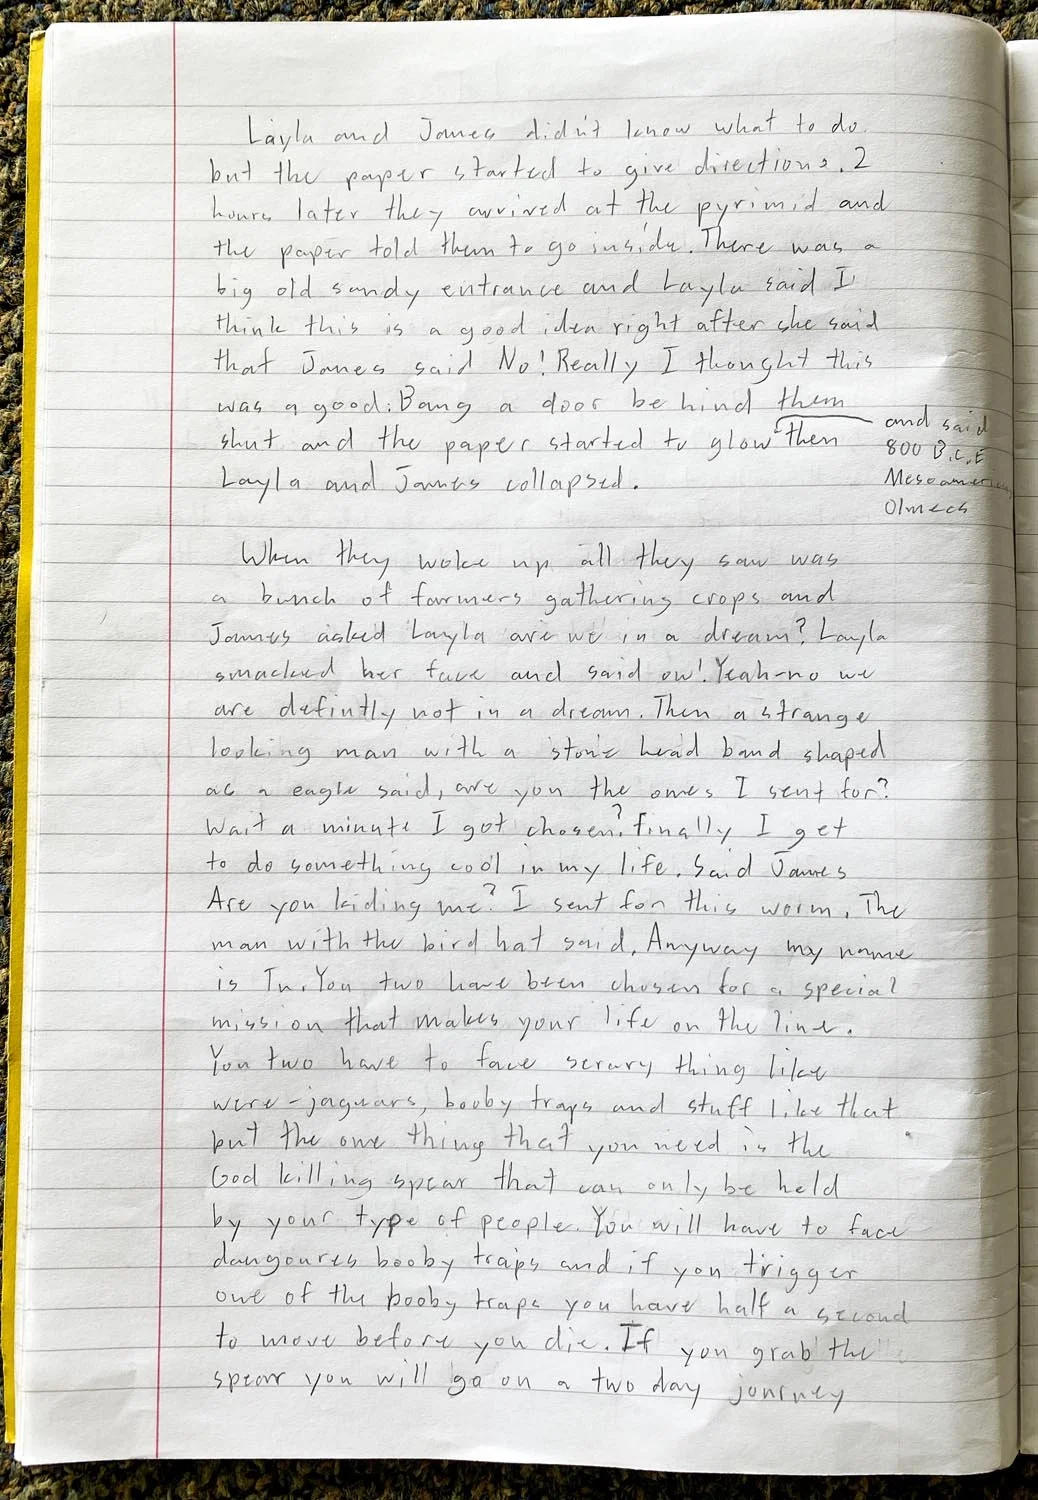 Layla and James didn't know what to do.
but the paper started to give directions. 2
hours later they arrived at the pyrimid and
the paper told them to go inside. There was a
big old sandy entrance and Layla said I
think this is a good idea right after she said
that James said No! Really I thought this
was a good. Bang a door behind them
shut and the paper started to glow then
and said
800 B.C.E
Mesoamerican
Olmecs
Layla and James collapsed.
When they woke up all they saw was
a bunch of farmers gathering crops and
James asked Layla are we in a dream? Layla
smacked her face and said ow! Yeah-no we
are defintly not in a dream. Then a strange
looking man with a stone head band shaped
as a eagle said, are you the ones I sent for?
Wait a minute I got chosen? finally I get
to do something cool in my life. Said James
Are you kiding me? I sent for this worm. The
man with the bird hat said. Anyway my name
is Tu. You two have been chosen for a special
mission that makes your life on the line.
You two have to face scrary thing like
were-jaguars, booby traps and stuff like that
but the one thing that you need is the
God killing spear that can only be held
by your type of people. You will have to face
dangoures booby traps and if you trigger
one of the booby traps you have half a second
to move before you die. If you grab the
spear you will go on a two day journey